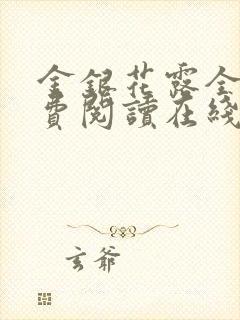 金銀花露全
費閱讀在綫
玄爺